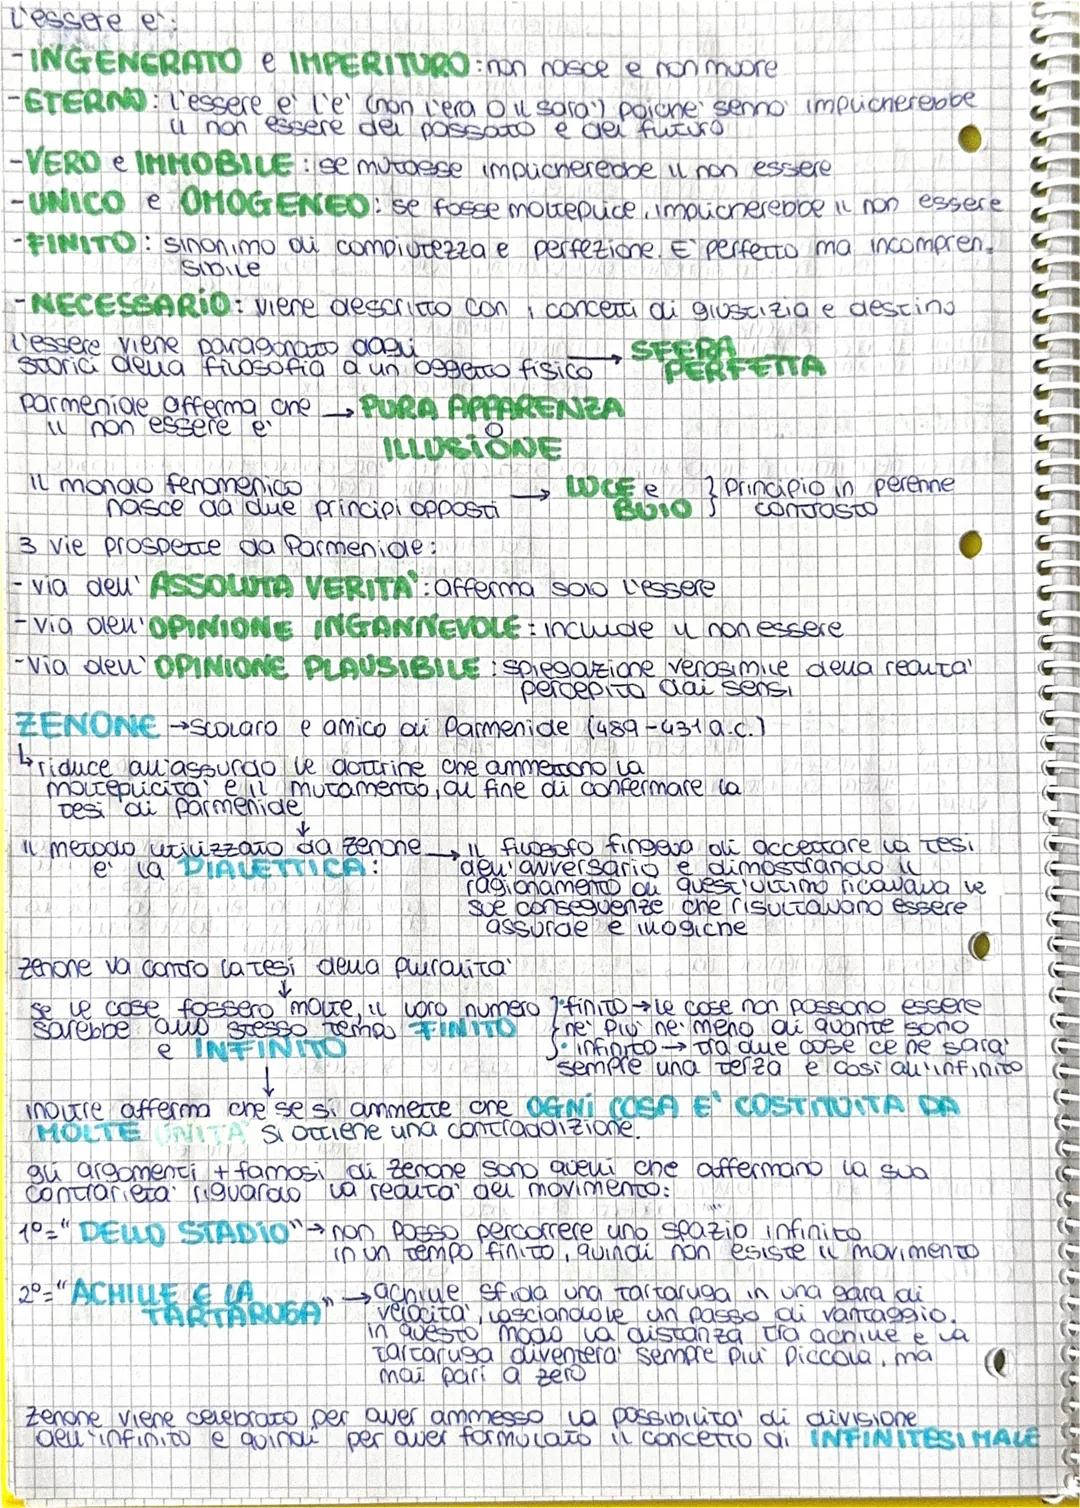 L'essere e':
-INGENERATO e IMPERITURO: non nasce e non muore
-ETERNO: l'essere e' l'e' (non l'era o il sara') poiche' senno' implicherebbe
il non essere del passato e del futuro
-VERO e IMMOBILE: se mutasse implicherebbe il non essere
-UNICO e OMOGENEO: se fosse molteplice, implicherebbe il non essere
-FINITO: sinonimo di compiutezza e perfezione. E' perfetto ma incompren-
sibile
-NECESSARIO: viene descritto con i concetti di giustizia e destino
L'essere viene paragonato dagli → SFERA
storici della filosofia a un oggetto fisico PERFETTA
parmenide afferma che → PURA APPARENZA
il non essere e' o
ILLUSIONE
Il mondo fenomenico → LUCE e } principio in perenne
nasce da due principi opposti BUIO contrasto
3 vie prospette da Parmenide:
-via dell'ASSOLUTA VERITA': afferma solo l'essere
-via dell'OPINIONE INGANNEVOLE: include il non essere
-via dell'OPINIONE PLAUSIBILE: spiegazione verosimile della realta'
percepita dai sensi
ZENONE → scolaro e amico di Parmenide (489-431 a.c.)
↳ riduce all'assurdo le dottrine che ammettono la
molteplicita' e il mutamento, al fine di confermare la
tesi di parmenide
↓
Il metodo utilizzato da zenone → il filosofo fingeva di accettare la tesi
e' la DIALETTICA: dell'avversario e dimostrando il
ragionamento di quest'ultimo ricavava le
sue conseguenze che risultavano essere
assurde e illogiche
zenone va contro la tesi della pluralita'
↓
se le cose fossero molte, il loro numero } • finito → le cose non possono essere
sarebbe allo stesso tempo FINITO ne' piu' ne' meno di quante sono
e INFINITO • infinito → tra due cose ce ne sara'
sempre una terza e cosi all'infinito
↓
inoltre afferma che se si ammette che OGNI COSA E' COSTITUITA DA
MOLTE UNITA' si ottiene una contraddizione.
gli argomenti + famosi di zenone sono quelli che affermano la sua
contrarieta' riguardo la realta' del movimento:
1°="DELLO STADIO" → non posso percorrere uno spazio infinito
in un tempo finito, quindi non esiste il movimento
2°="ACHILLE E LA → achille sfida una tartaruga in una gara di
TARTARUGA" velocita', lasciandole un passo di vantaggio.
In questo modo la distanza tra achille e la
tartaruga diventera' sempre piu' piccola, ma
mai pari a zero
zenone viene celebrato per aver ammesso la possibilita' di divisione
dell'infinito e quindi per aver formulato il concetto di INFINITESIMALE